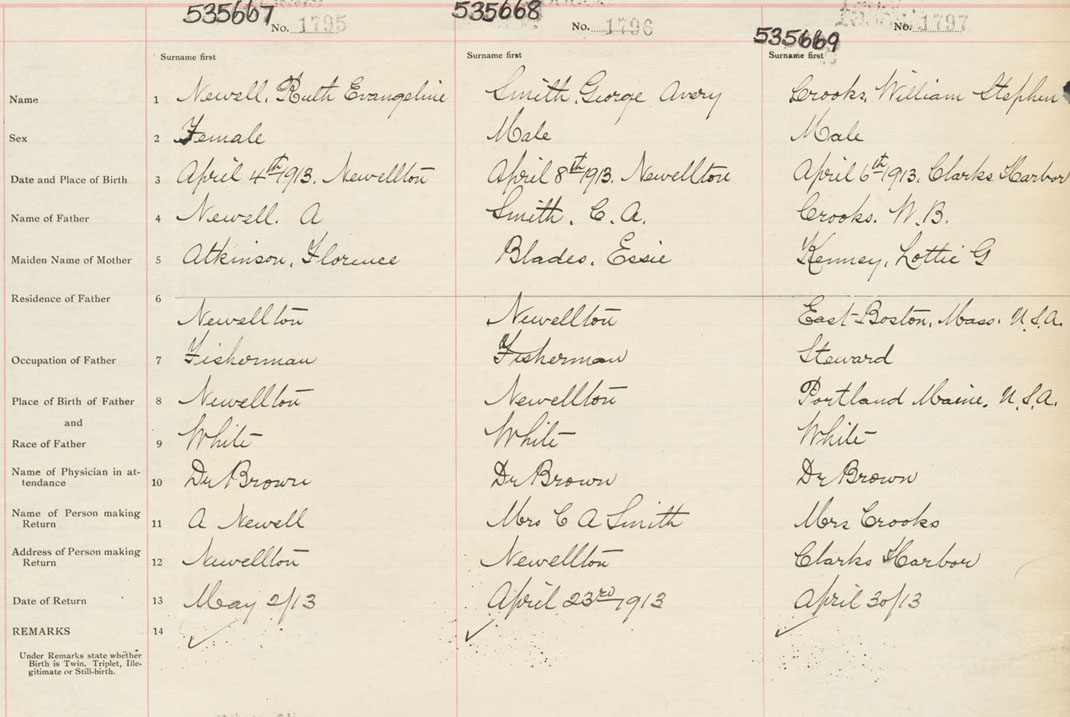 535667 No. 1795 535668 No. 1796 535669 No. 1797
Surname first Surname first Surname first
Name 1 Newell, Ruth Evangeline Smith, George Avery Crooks, William Stephen
Sex 2 Female Male Male
Date and Place of Birth 3 April 4th 1913. Newellton April 8th 1913. Newellton April 6th 1913. Clarks Harbor
Name of Father 4 Newell. A Smith, C. A. Crooks. W. B.
Maiden Name of Mother 5 Atkinson, Florence Blades, Essie Kenney, Lottie G
Residence of Father 6
Newellton Newellton East-Boston, Mass. U.S.A.
Occupation of Father 7 Fisherman Fisherman Steward
Place of Birth of Father 8 Newellton Newellton Portland Maine, U.S.A.
and
Race of Father 9 White White White
Name of Physician in at-
tendance 10 Dr Brown Dr Brown Dr Brown
Name of Person making
Return 11 A Newell Mrs C A Smith Mrs Crooks
Address of Person making
Return 12 Newellton Newellton Clarks Harbor
Date of Return 13 May 2/13 April 23rd 1913 April 30/13
REMARKS 14 ✓ ✓ ✓
Under Remarks state whether
Birth is Twin, Triplet, Ille-
gitimate or Still-birth.